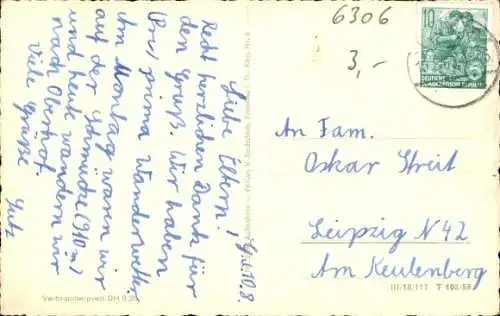 6306
3,-
10
DEUTSCHE
DEMOKRATISCHE REPUBLIK
Gn. 10.8.
Liebe Eltern!
Recht herzlichen Dank für
den Gruß. Wir haben
prima Wanderwetter.
Am Montag waren wir
auf der Schmücke (910 m)
und heute wandern wir
nach Oberhof.
Viele Grüße
Gutz
An Fam.
Oskar Streit
Leipzig N 42
Am Keulenberg
III/18/117 T 160/58
Verbraucherpreis DM 0,25